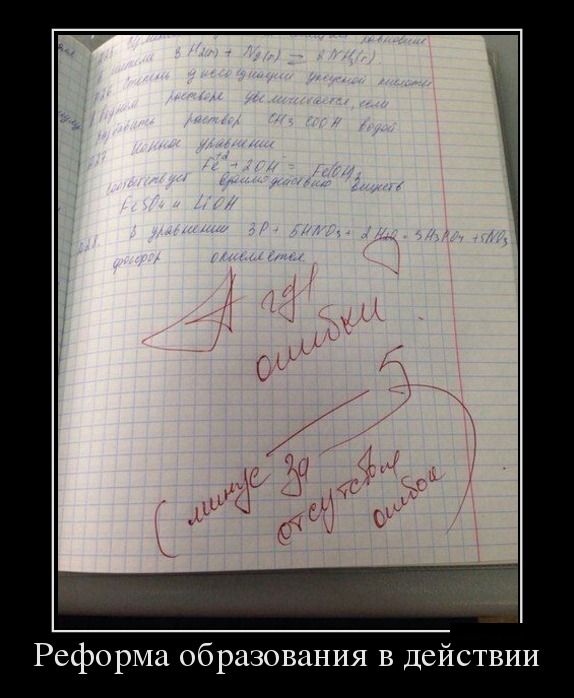 равновесие
3H2(г) + N2(г) = 2NH3(г).
Степень диссоциации уксусной кислоты
в водном растворе увеличивается, если
разбавить раствор CH3COOH водой
Ионное уравнение
Fe+2 + 2OH- = Fe(OH)2
соответствует взаимодействию веществ
FeSO4 и LiOH
В уравнении 3P + 5HNO3 + 2H2O = 3H3PO4 + 5NO
фосфор окисляется
А где
ошибки
5
(минус за
отсутствие
ошибок)
Реформа образования в действии